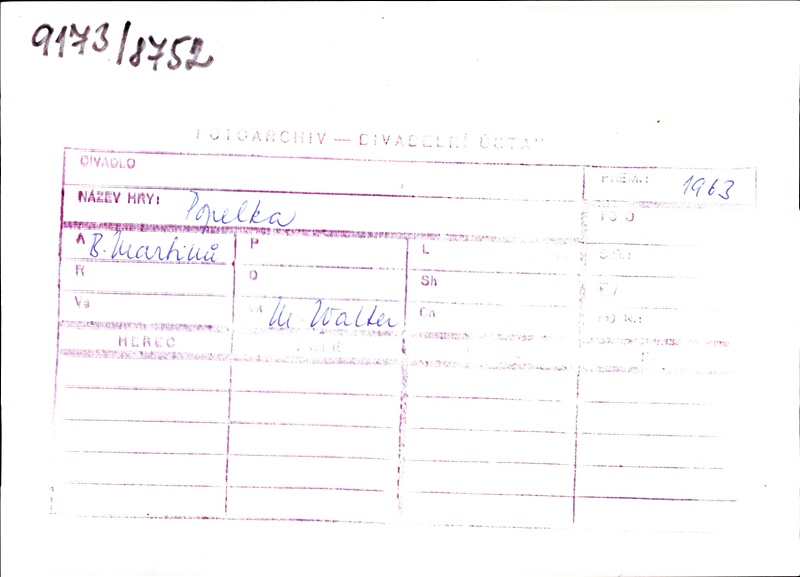 9173/8752
FOTOARCHIV — DIVADELNÍ ÚSTAV
DIVADLO
PREM.: 1963
NÁZEV HRY: Popelka
A B. Martinů P L
R O Sh
Vs M. Walter
HEREC